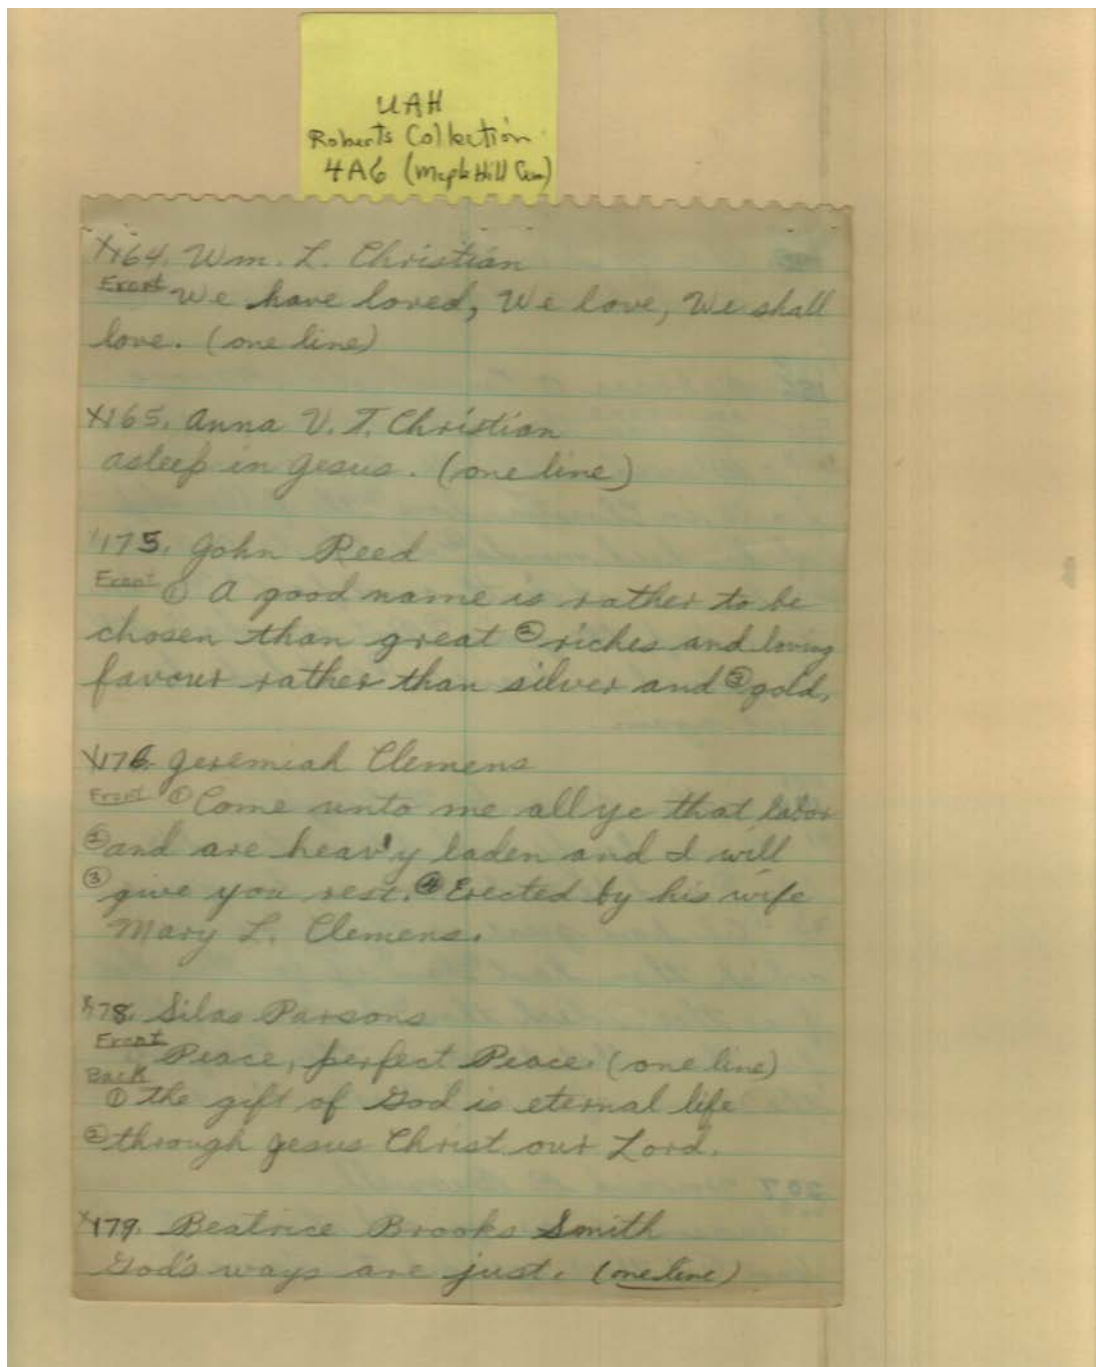 UAH
Roberts Collection
4A6 (Maple Hill Cem)
X164. Wm. L. Christian
Front We have loved, We love, We shall
love. (one line)
X165. Anna V. T. Christian
asleep in Jesus. (one line)
175. John Reed
Front ① A good name is rather to be
chosen than great ② riches and loving
favour rather than silver and ③ gold.
X176. Jeremiah Clemens
Front ① Come unto me all ye that labor
② and are heavy laden and I will
③ give you rest. ④ Erected by his wife
Mary L. Clemens.
X178. Silas Parsons
Front Peace, perfect Peace. (one line)
Back
① The gift of God is eternal life
② through Jesus Christ our Lord.
X179. Beatrice Brooks Smith
God's ways are just. (one line)